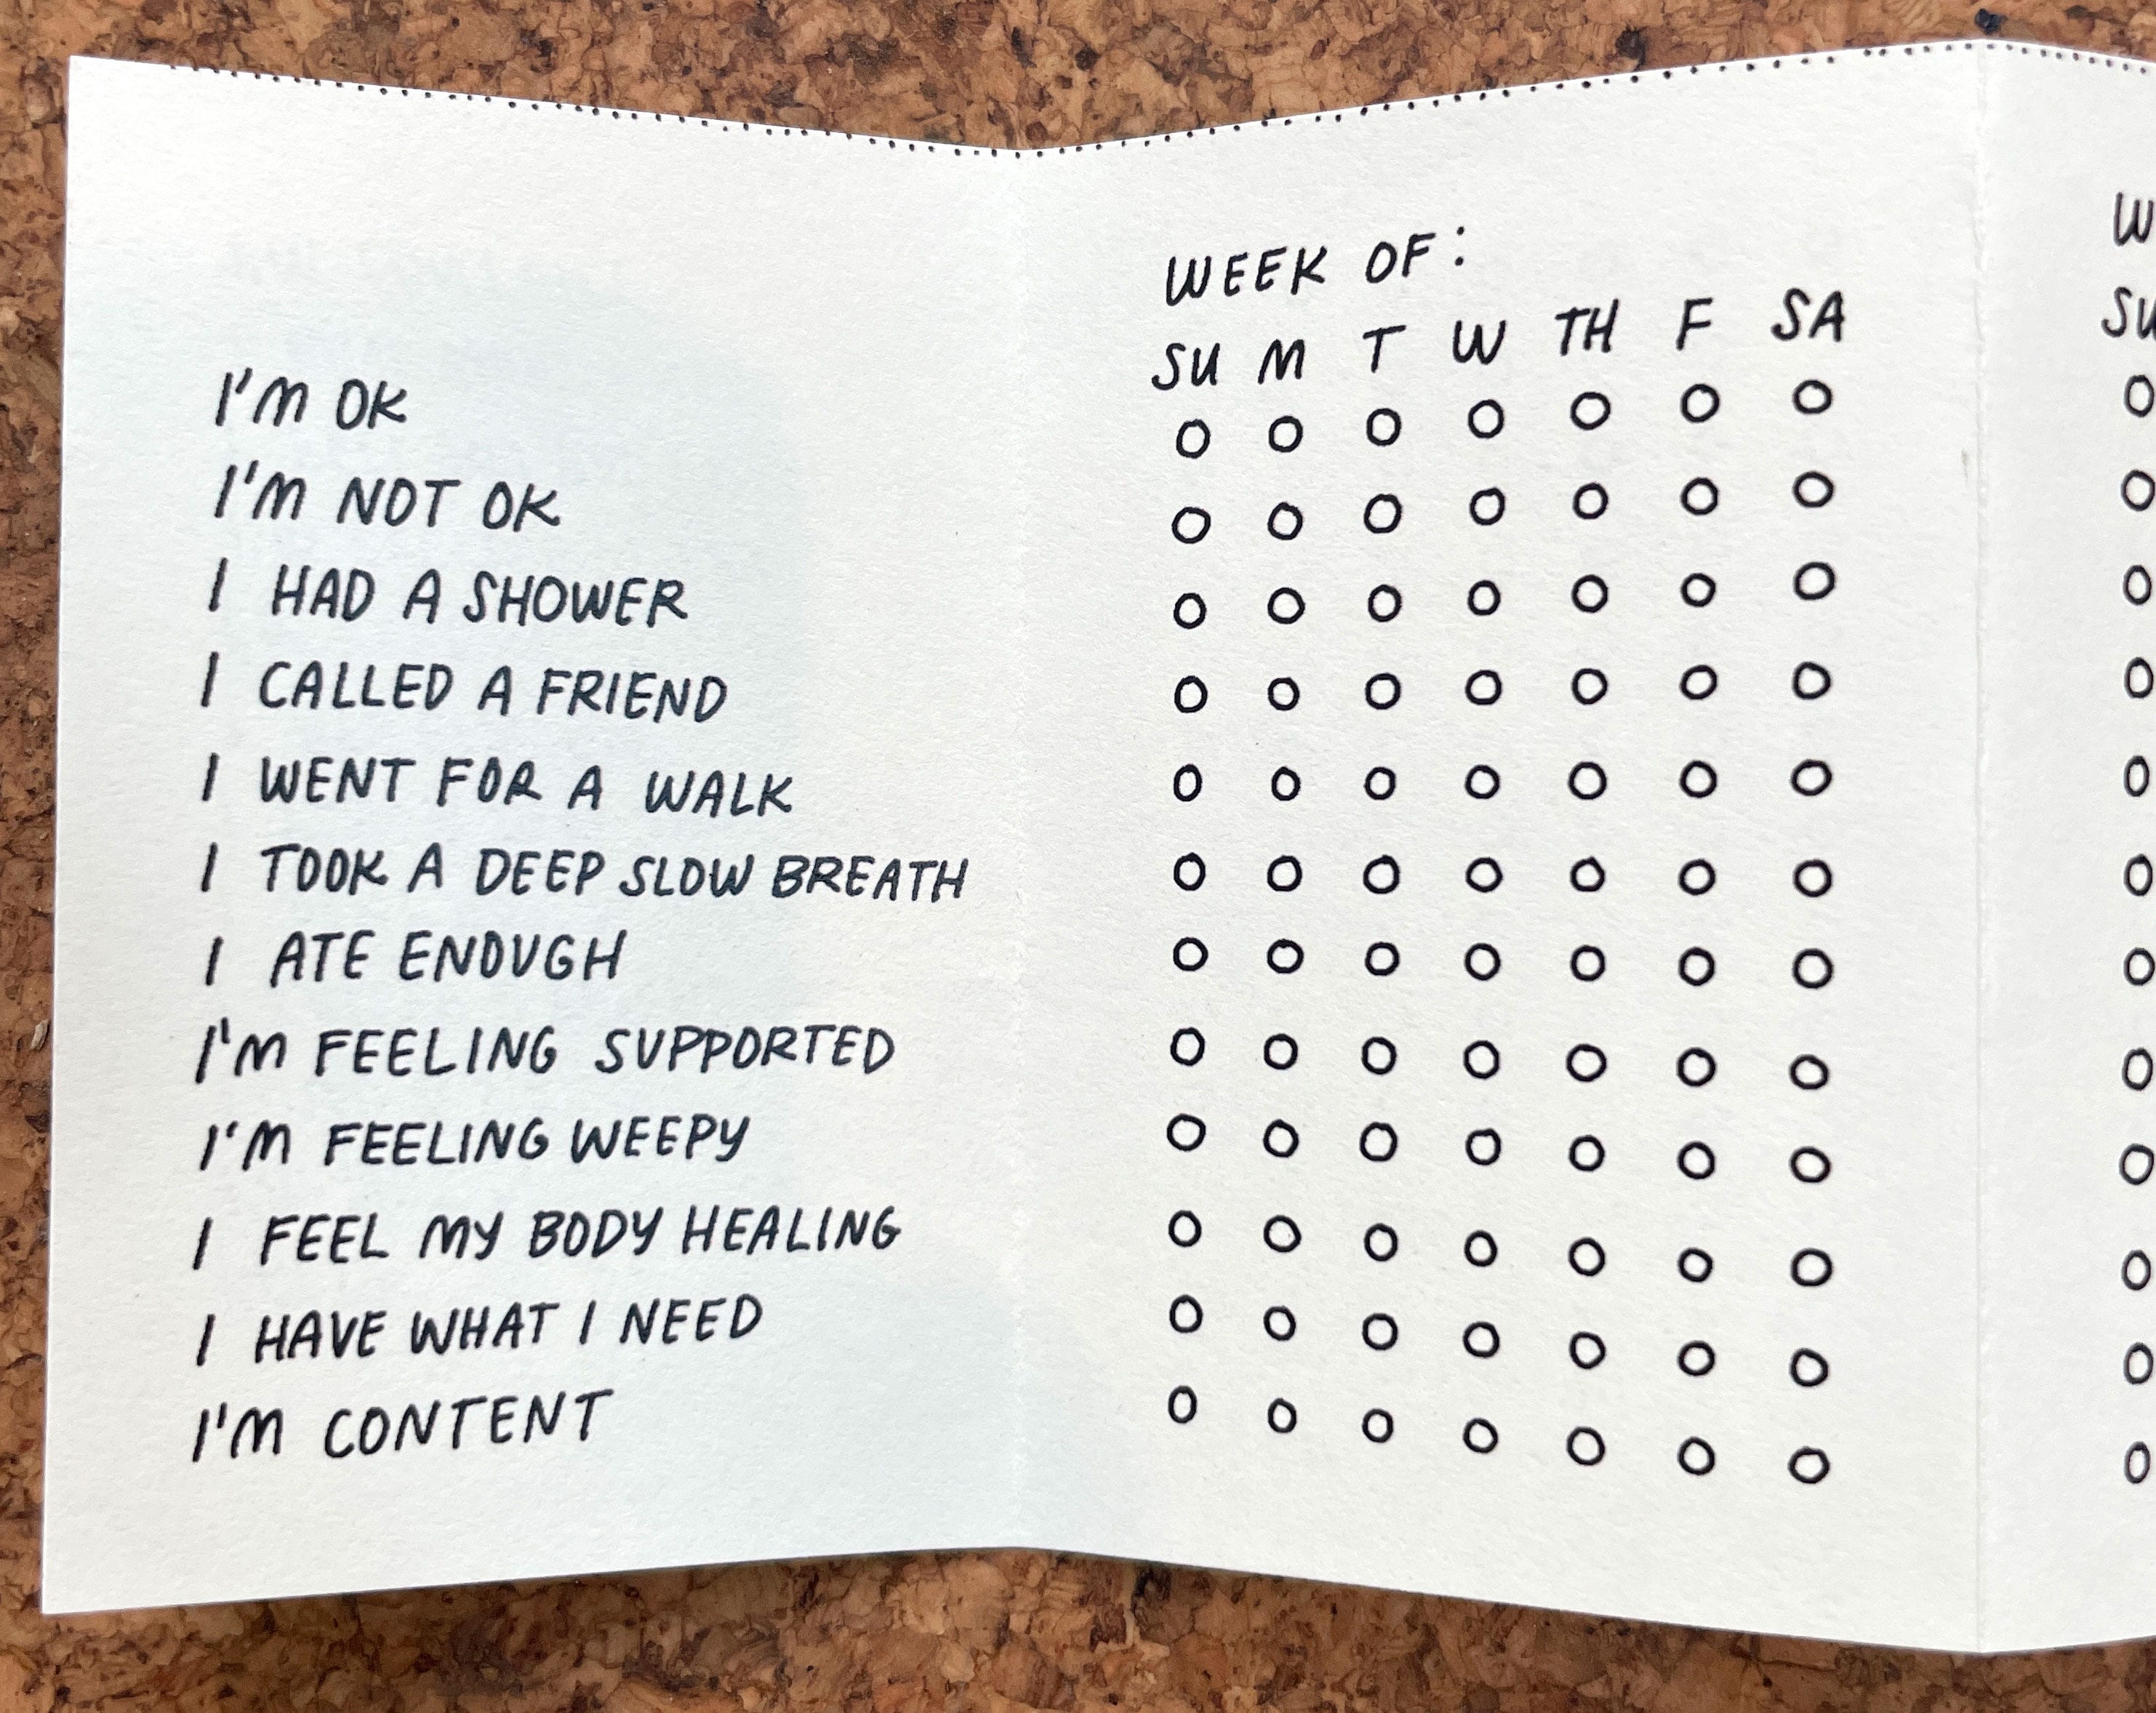 WEEK OF:
SU M T W TH F SA
I'M OK
I'M NOT OK
I HAD A SHOWER
I CALLED A FRIEND
I WENT FOR A WALK
I TOOK A DEEP SLOW BREATH
I ATE ENOUGH
I'M FEELING SUPPORTED
I'M FEELING WEEPY
I FEEL MY BODY HEALING
I HAVE WHAT I NEED
I'M CONTENT
W
SU